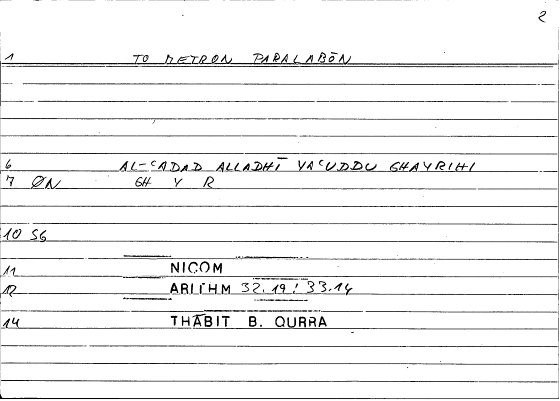 2
1 TO METRON PARALABŌN
6 AL-ʿADAD ALLADHĪ YAʿUDDU GHAYRIHI
7 ØN GH Y R
10 SG
11 NICOM
12 ARITHM 32.19 : 33.14
14 THĀBIT B. QURRA